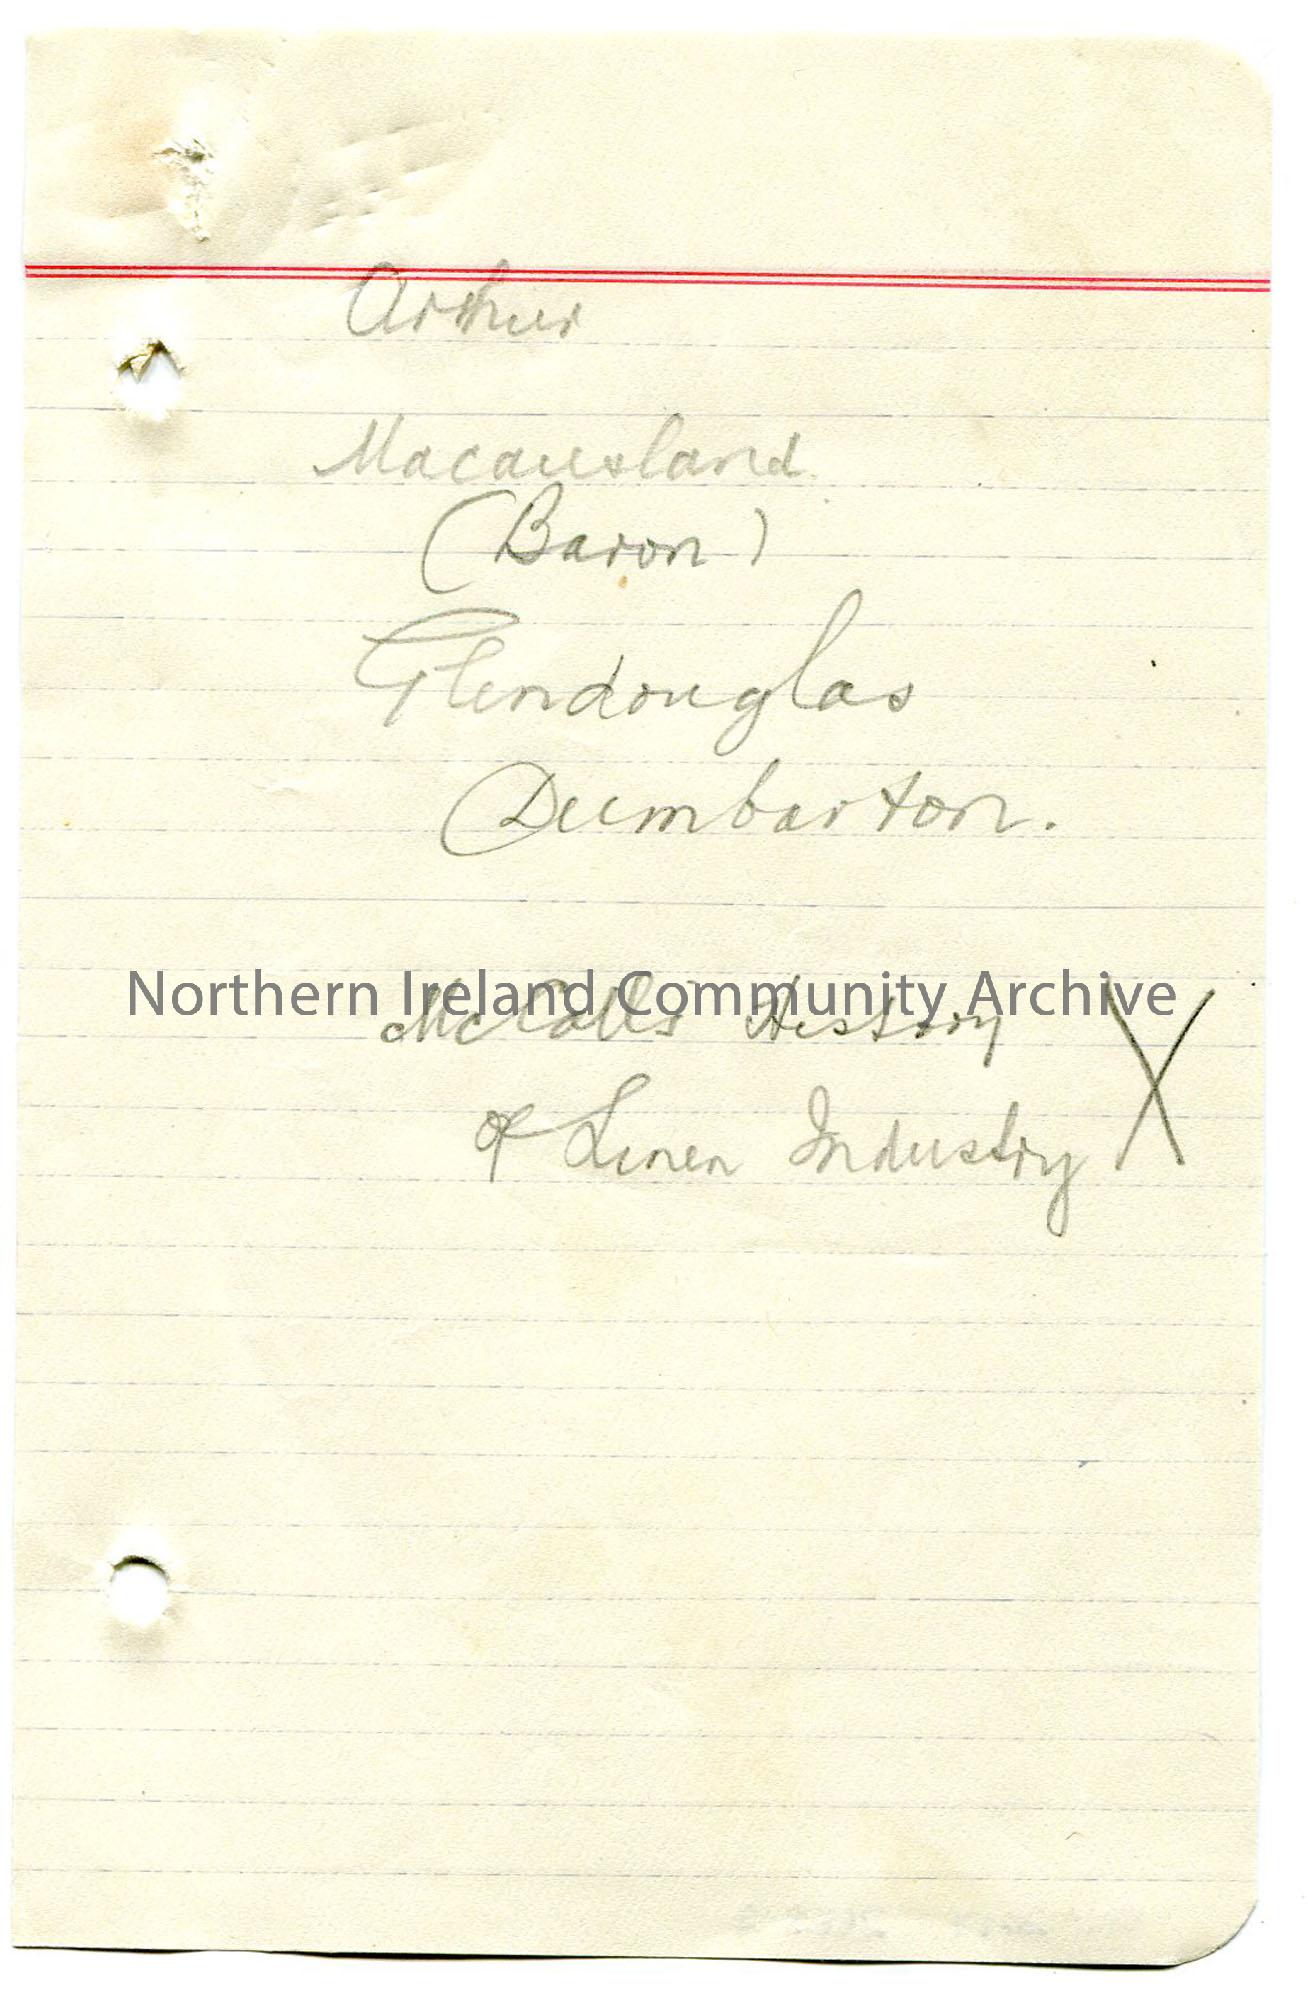 Arthur
Macausland
(Baron)
Glendouglas
Dumbarton.
Northern Ireland Community Archive
McCall's History X
of Linen Industry